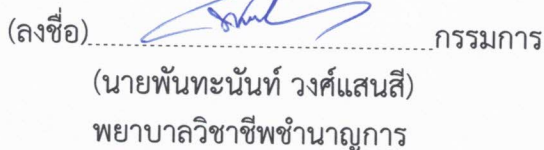 (ลงชื่อ)........................................กรรมการ
(นายพันทะนันท์ วงศ์แสนสี)
พยาบาลวิชาชีพชำนาญการ